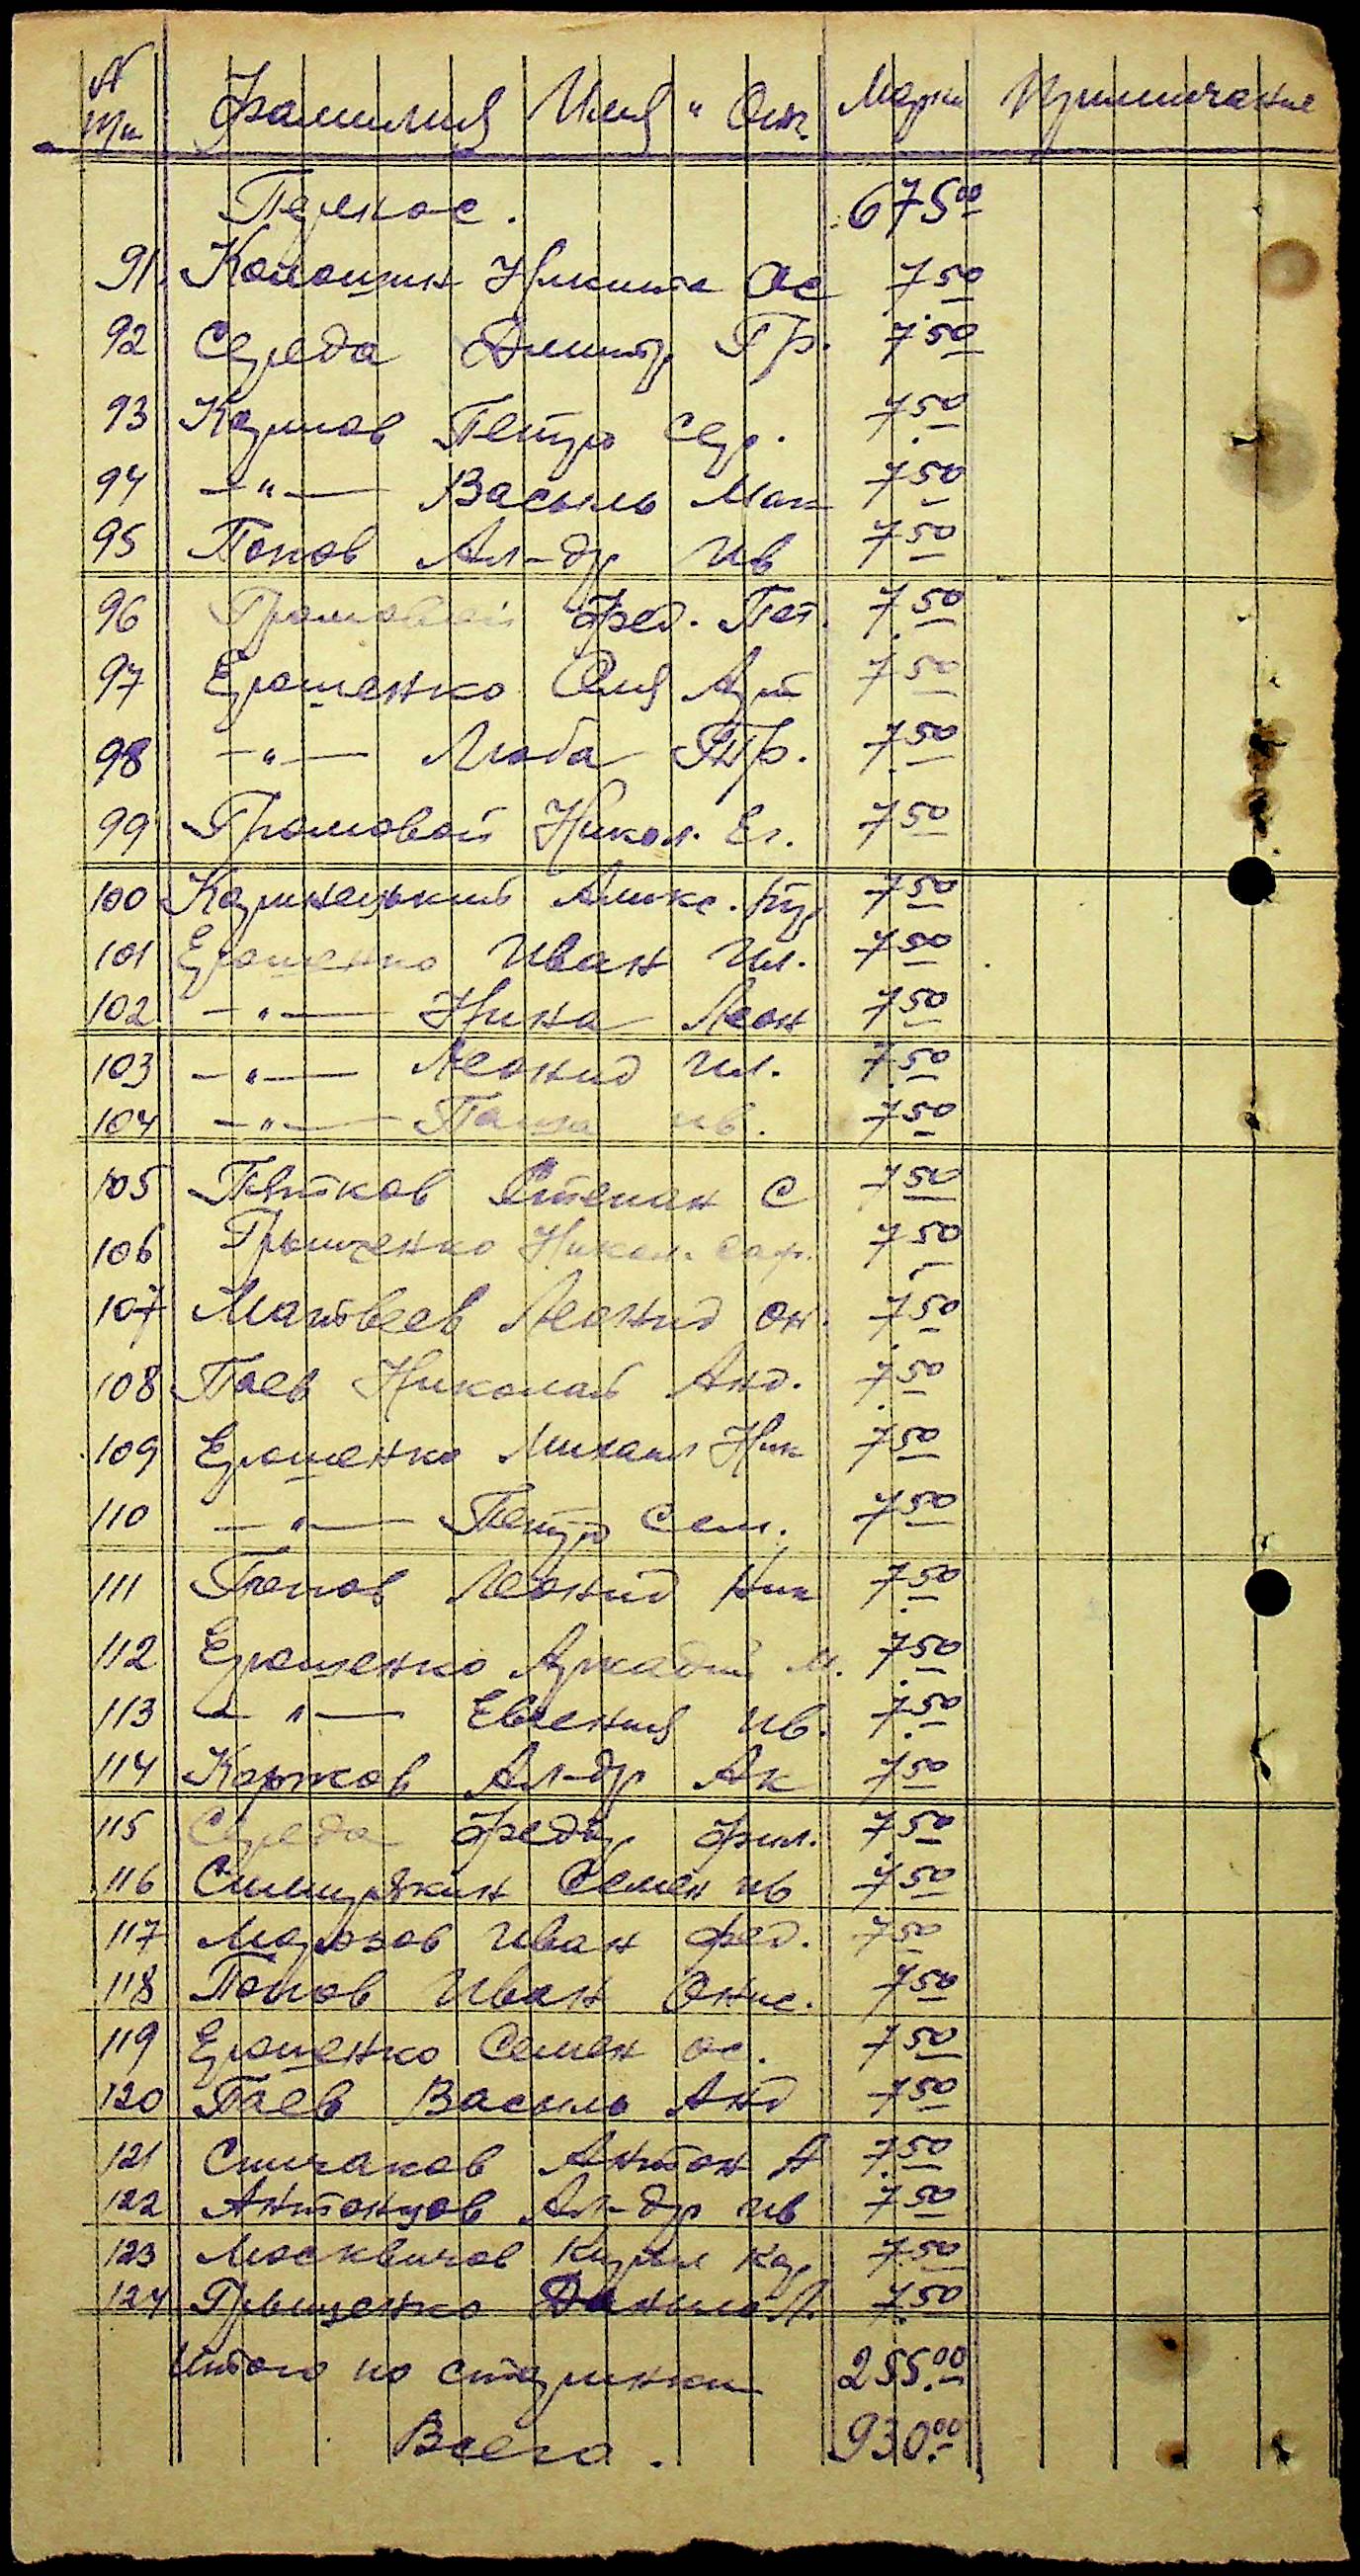 № п/п Фамилия Имя и Отч. Марки Примичание
Перенос. 675 00
91. Никита Ос 7 50
92 Середа Дмитр Гр. 7 50
93 Каринов Петро Сер. 7 50
94 —"— Василь Мак 7 50
95 Попов Ал-др Ив 7 50
96 Громовой Фед. Пет. 7 50
97 Ерошенко Оля Арт 7 50
98 —"— Люба Тр. 7 50
99 Громовой Никол. Ег. 7 50
100 Алекс. 7 50
101 Ерошенко Иван Ил. 7 50
102 —"— Нина Леон 7 50
103 —"— Леонид Ил. 7 50
104 —"— Паша Ив. 7 50
105 Пятков Степан С 7 50
106 Грыщенко Никол. Заф. 7 50
107 Матвеев Леонид Он. 7 50
108 Паев Николай Анд. 7 50
109 Ерошенко Михаил Ник 7 50
110 —"— Петро Сем. 7 50
111 Попов Леонид Ник 7 50
112 Ерошенко Аркадий М. 7 50
113 —"— Евгения Ив. 7 50
114 Коржов Ал-др Ак 7 50
115 Середа Федор Фил. 7 50
116 Семен Ив 7 50
117 Морозов Иван Фед. 7 50
118 Попов Иван Онис. 7 50
119 Ерошенко Семен Ос. 7 50
120 Паев Василь Анд 7 50
121 Спичаков Антон А 7 50
122 Антонцов Ал-др Ив 7 50
123 Москвичов Кирил Кар 7 50
124 Грыщенко Данило Л. 7 50
Итого по старинки 255.00
Всего. 930.00